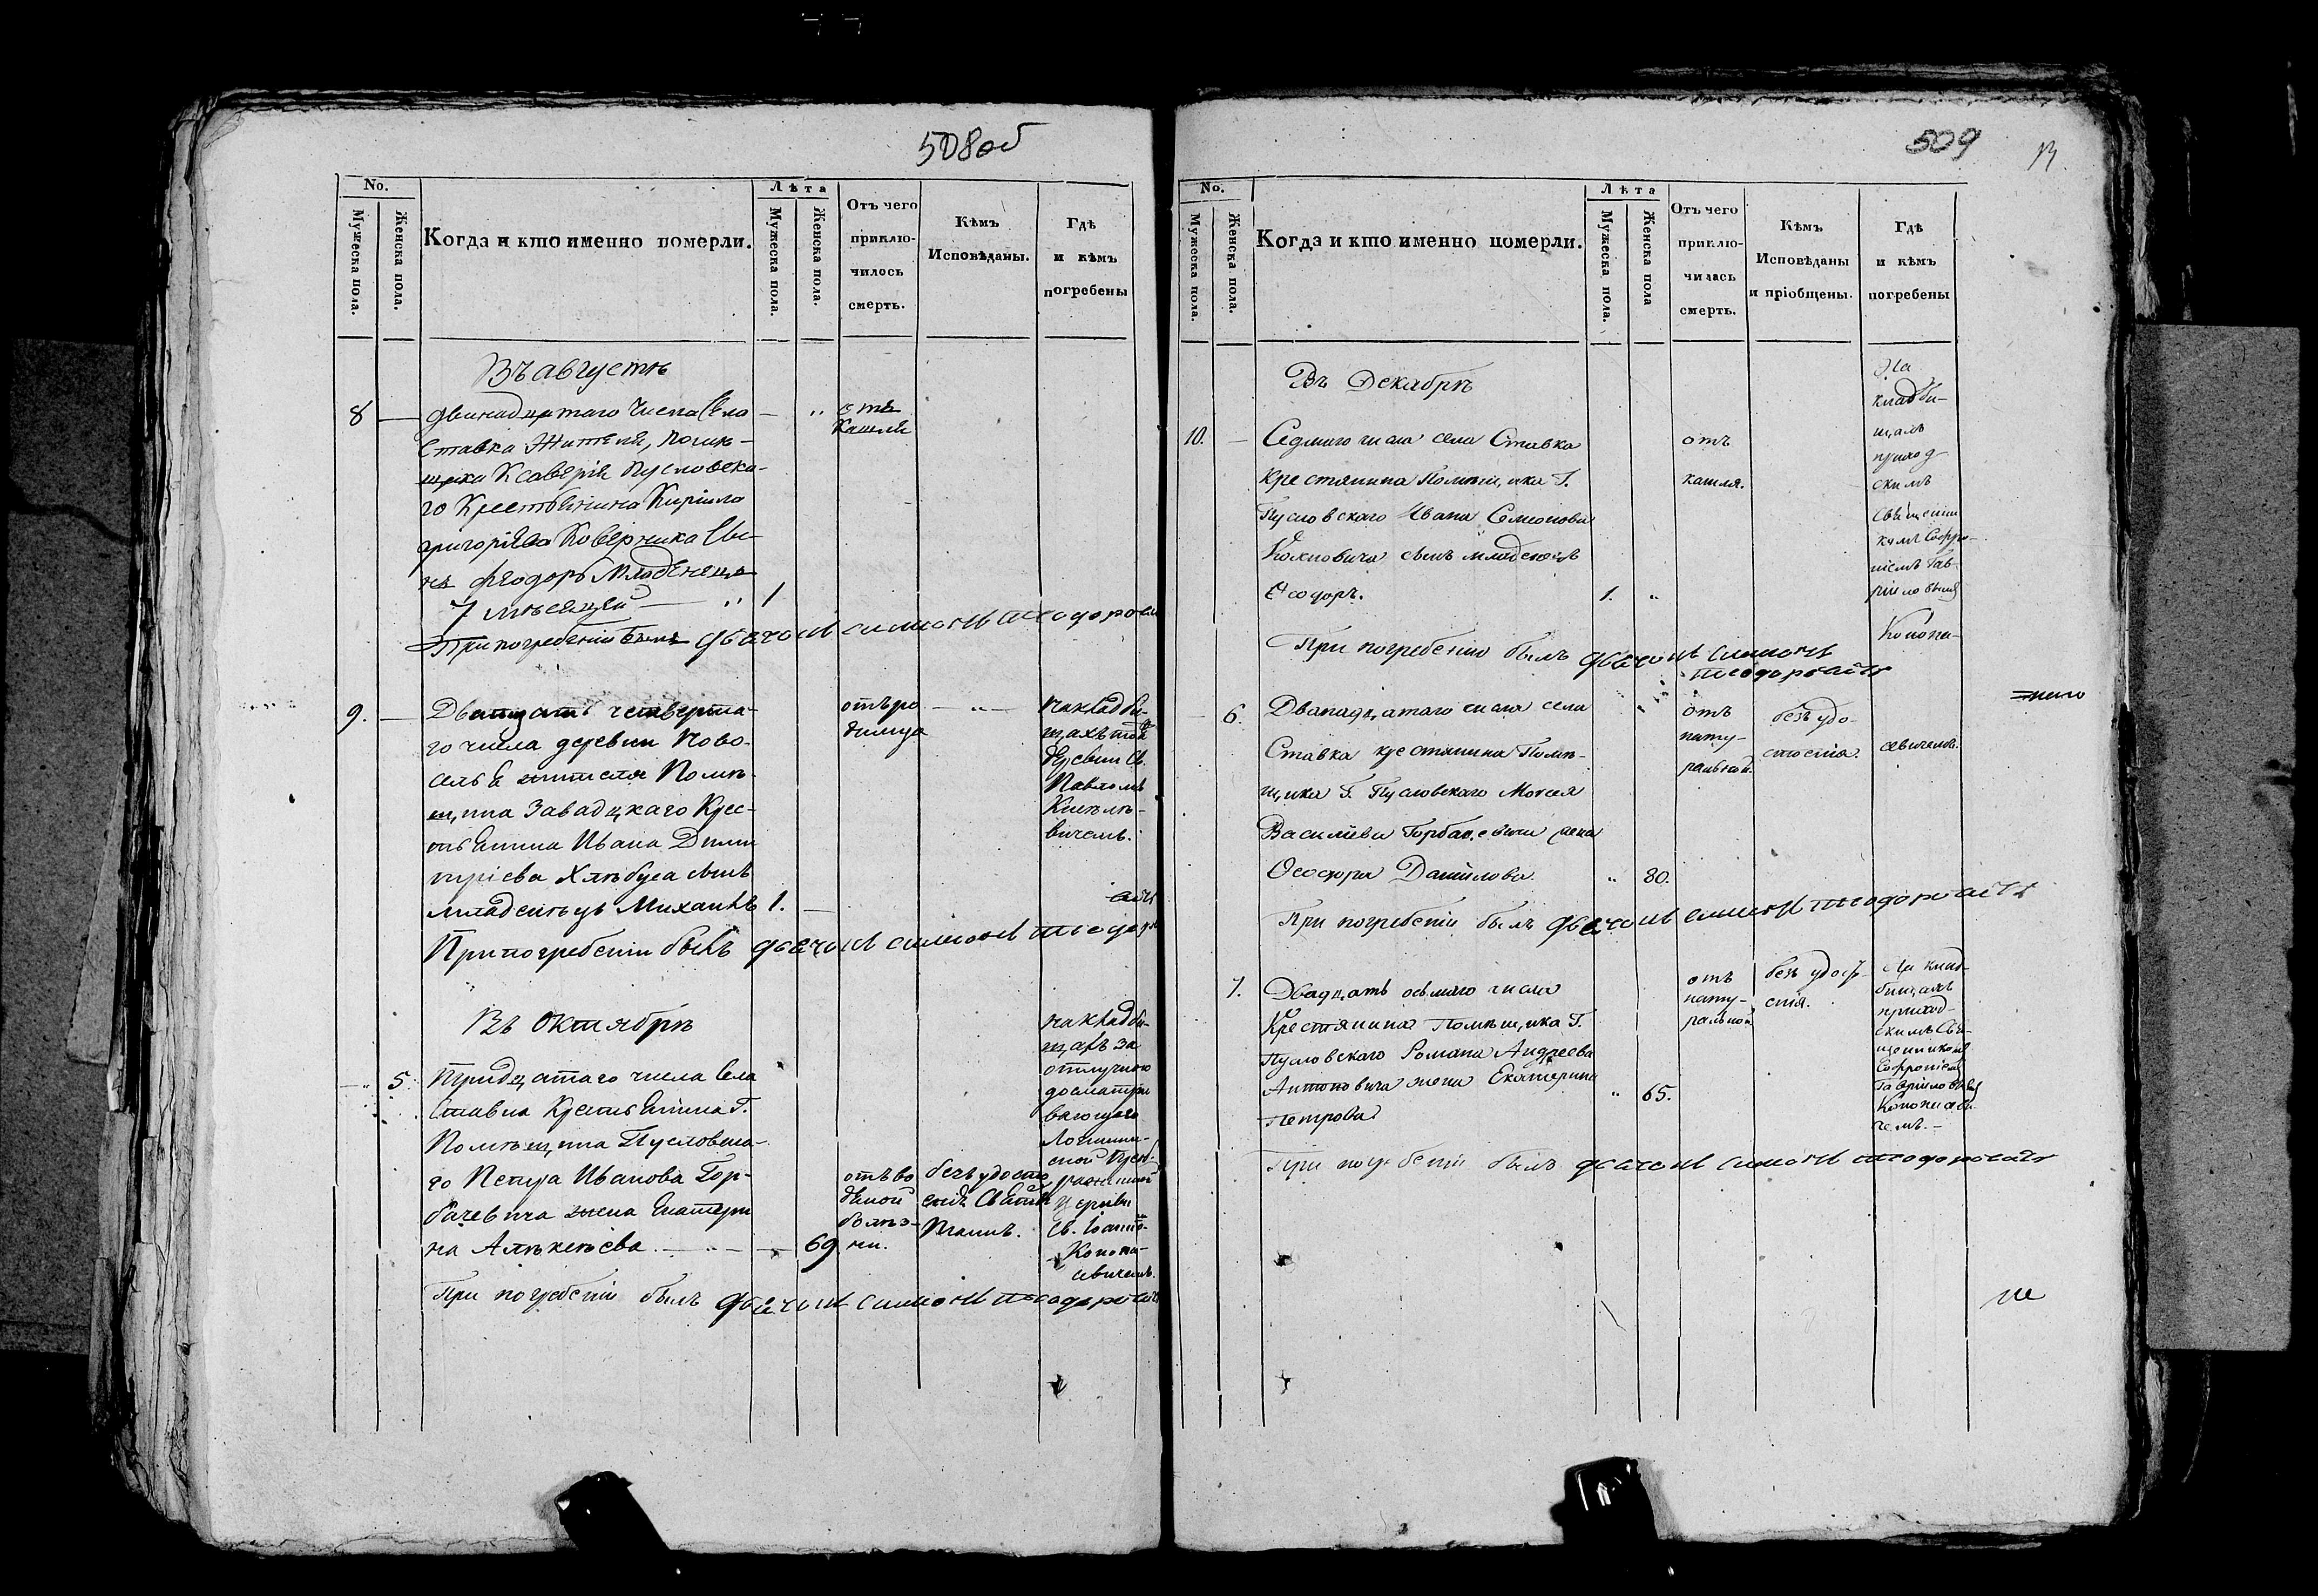 508об
No.
Мужеска пола.
Женска пола.
Когда и кто именно померли.
Лѣта
Мужеска пола.
Женска пола.
Отъ чего
приклю-
чилось
смерть.
Кѣмъ
Исповѣданы.
Гдѣ
и кѣмъ
погребены
Въ августѣ
8 — двинадцатаго Числа Села — " отъ
Ставка Жителя, помѣ- кашля
щика Ксаверія Пусловска-
го Крестьянина Кирилла
григоріева Коверчика Сы-
нъ Феодоръ Младенецъ
7 мѣсяцей — " 1
При погребеніи былъ дьячокъ симонъ
9. — Дватцать четверта-
го числа деревни Ново-
селья жителя Помѣ-
щика Завадцкаго Крес-
тьянина Ивана Дими
тріева Хлѣбуса сынъ
младенецъ Михаилъ 1. —
отъ ро
димца
— " —
на кладби-
щахъ той
деревни Св.
Павломъ
вичемъ.
При погребеніи былъ дьячокъ симонъ
Въ Октябрѣ
5. Тридцатаго числа Села
Ставка Крестьянина Г.
Помѣщика Пусловска-
го Петра Иванова Гор-
бачевича жена Екатери
на — " — 69
отъ во
дяной
болѣз-
ни.
безъ удосто
на кладби-
щахъ за
отлучкою
досматри
вающаго
церкви
Св.
Конопа-
севичемъ.
При погребеніи былъ дьячокъ симонъ
509
No.
Мужеска пола.
Женска пола.
Когда и кто именно померли.
Лѣта
Мужеска пола.
Женска пола
Отъ чего
приклю-
чилась
смерть.
Кѣмъ
Исповѣданы
и пріобщены.
Гдѣ
и кѣмъ
погребены
Въ Декабрѣ
10. — Седмого числа села Ставка
Крестянина Помѣщика Г.
Пусловскаго Ивана Семіонова
сынъ младенецъ
Феодоръ. 1. "
отъ
кашля.
На
кладби-
щахъ
приход
скимъ
Священни
комъ Софро-
ніемъ Гав-
риловымъ
Конопа-
При погребеніи былъ дьячокъ симонъ
— 6. Дванадцатаго числа села
Ставка крестянина Помѣ-
щика Г. Пусловскаго Мотея
Василіева Горбачевича жена
Феодора Данилова " 80.
отъ
нату-
ральной.
безъ удо-
стоенія.
севичемъ.
При погребеніи былъ дьячокъ симонъ
7. Двадцать осьмаго числа
Крестянина Помѣщика Г.
Пусловскаго Романа Андреева
Антоновича жена Екатерина
Петрова " 65.
отъ
нату-
ральной
безъ удост-
енія.
На клад-
бищахъ
приход-
скимъ Свя-
щенникомъ
Софроніемъ
Гавриловымъ
Конопасеви
чемъ. —
При погребеніи былъ дьячокъ симонъ